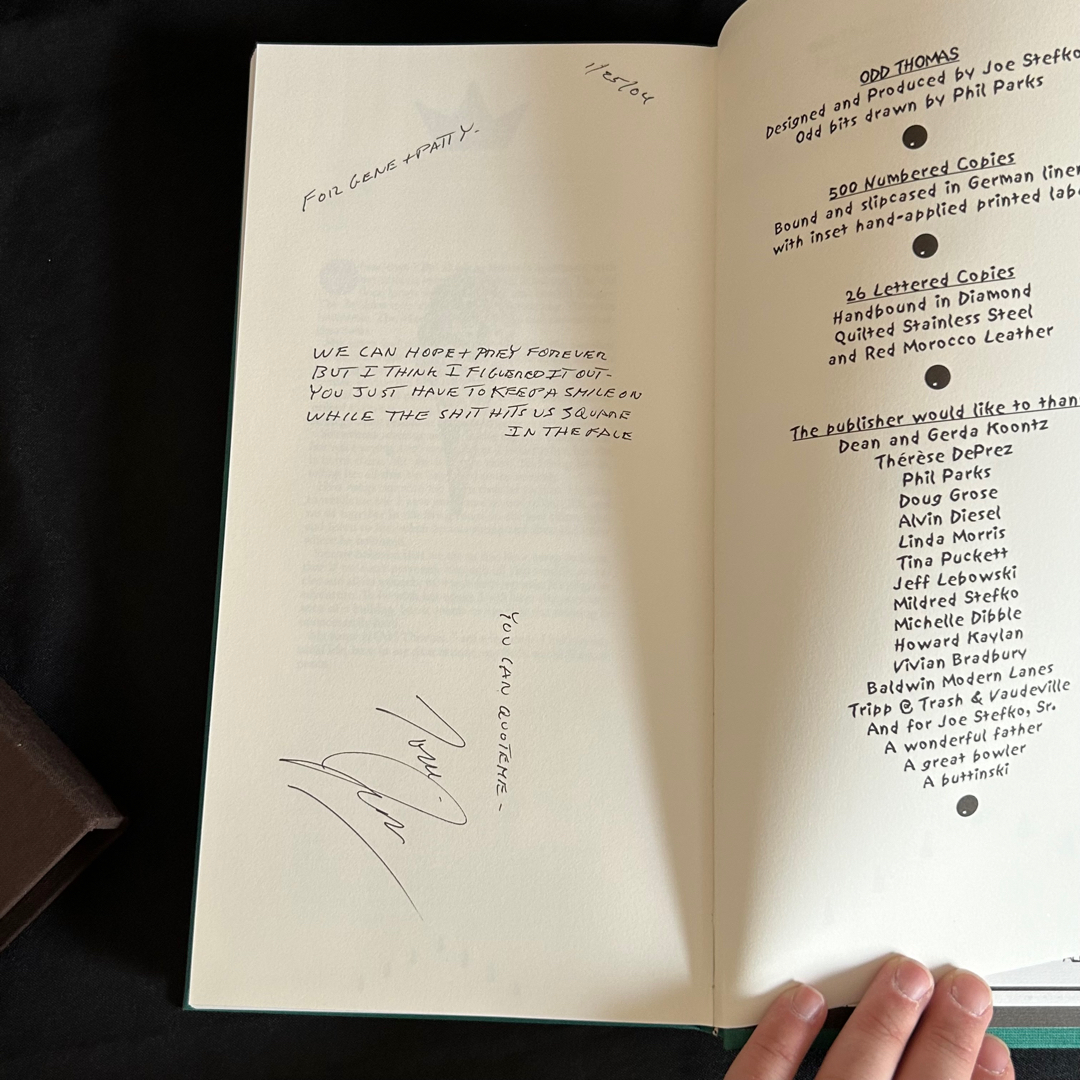 1/25/04
FOR GENE + PATTY.
WE CAN HOPE + PREY FOREVER
BUT I THINK I FIGURED IT OUT-
YOU JUST HAVE TO KEEP A SMILE ON
WHILE THE SHIT HITS US SQUARE
IN THE FACE
YOU CAN QUOTE ME -
ODD THOMAS
Designed and Produced by Joe Stefko
Odd bits drawn by Phil Parks
500 Numbered Copies
Bound and slipcased in German
with inset hand-applied printed
26 Lettered Copies
Handbound in Diamond
Quilted Stainless Steel
and Red Morocco Leather
The publisher would like to
Dean and Gerda Koontz
Thérèse DePrez
Phil Parks
Doug Grose
Alvin Diesel
Linda Morris
Tina Puckett
Jeff Lebowski
Mildred Stefko
Michelle Dibble
Howard Kaylan
Vivian Bradbury
Baldwin Modern Lanes
Tripp @ Trash & Vaudeville
And for Joe Stefko, Sr.
A wonderful father
A great bowler
A buttinski